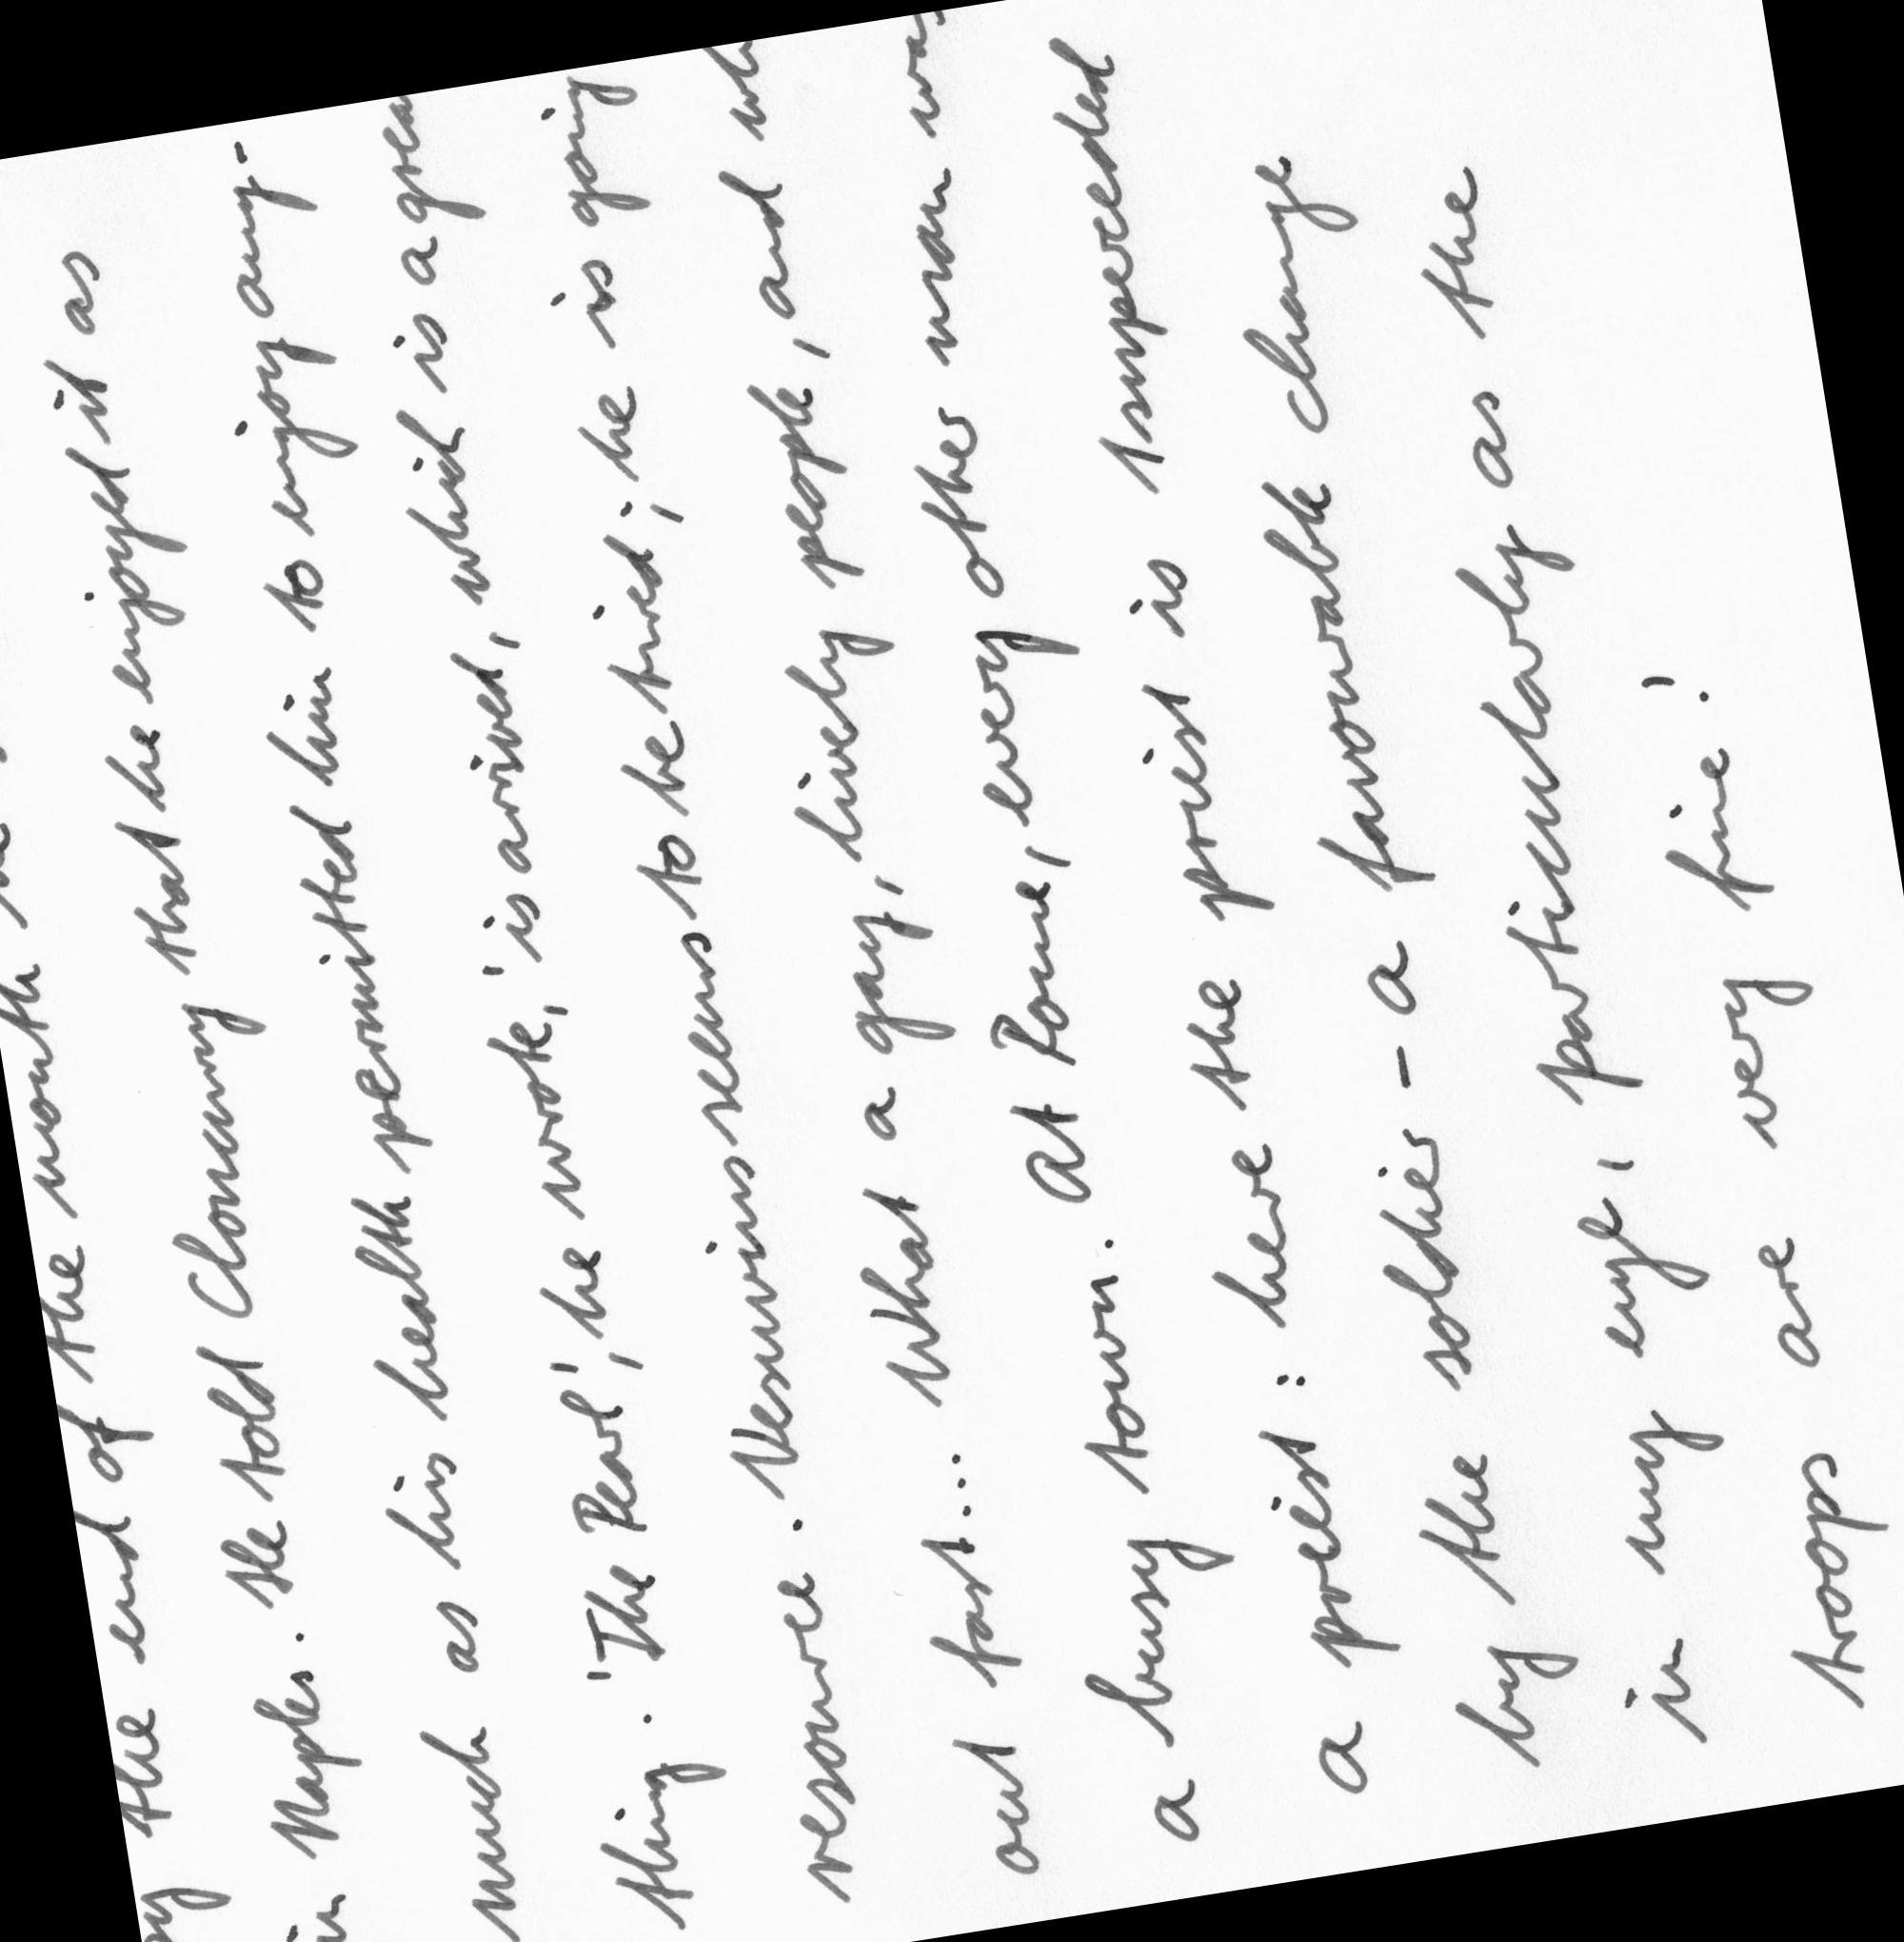 by the end of the month he
in Naples. He told Clonmany that he enjoyed it as
much as his health permitted him to enjoy any-
thing. 'The Pearl', he wrote, 'is arrived, which is a grea
resource. Vesuvius seems to be tired; he is going
out fast... What a gay, lively people, and wh
a busy town. At Rome, every other man was
a priest: here the priest is superseded
by the soldier - a favourable change
in my eye, particularly as the
troops are very fine!'